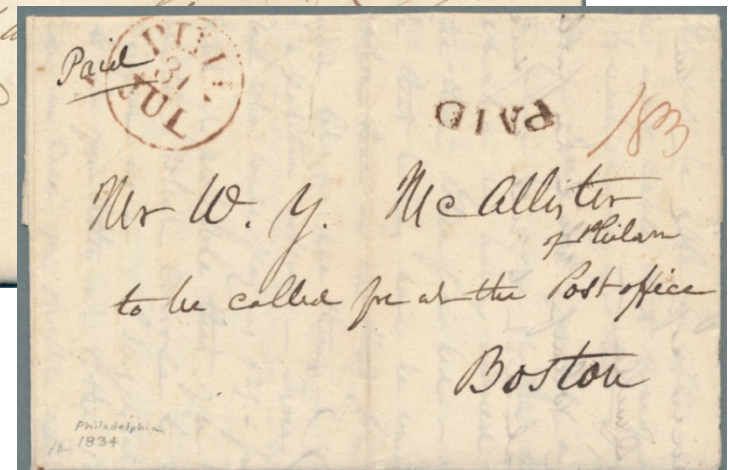 Paid
PHIL
31
JUL
PAID
Mr W. Y. McAllister
of Philam
to be called for at the Post office
Boston
Philadelphia
1834